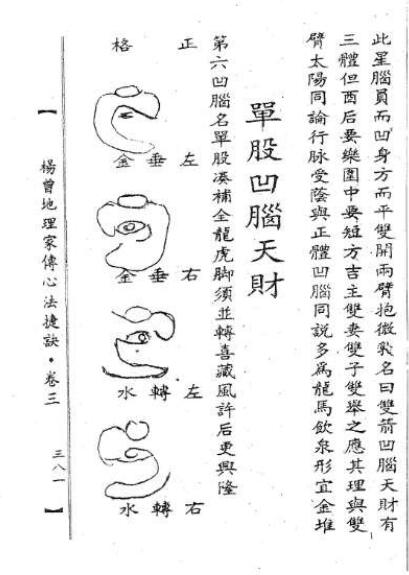 此星腦員而凹身方而平雙開兩臂抱微彎名曰雙箭凹腦天財有
三體但西后要樂圍中要短方吉主雙妻雙子雙舉之應其理與雙
臂太陽同論行脉受蔭與正體凹腦同說多為龍馬飲泉形宜金堆
單股凹腦天財
第六凹腦名單股凑補全龍虎脚須並轉喜藏風許后更興隆
正格
左垂金
右垂金
左轉水
右轉水
【楊曾地理家傳心法捷訣·卷三 三八一】